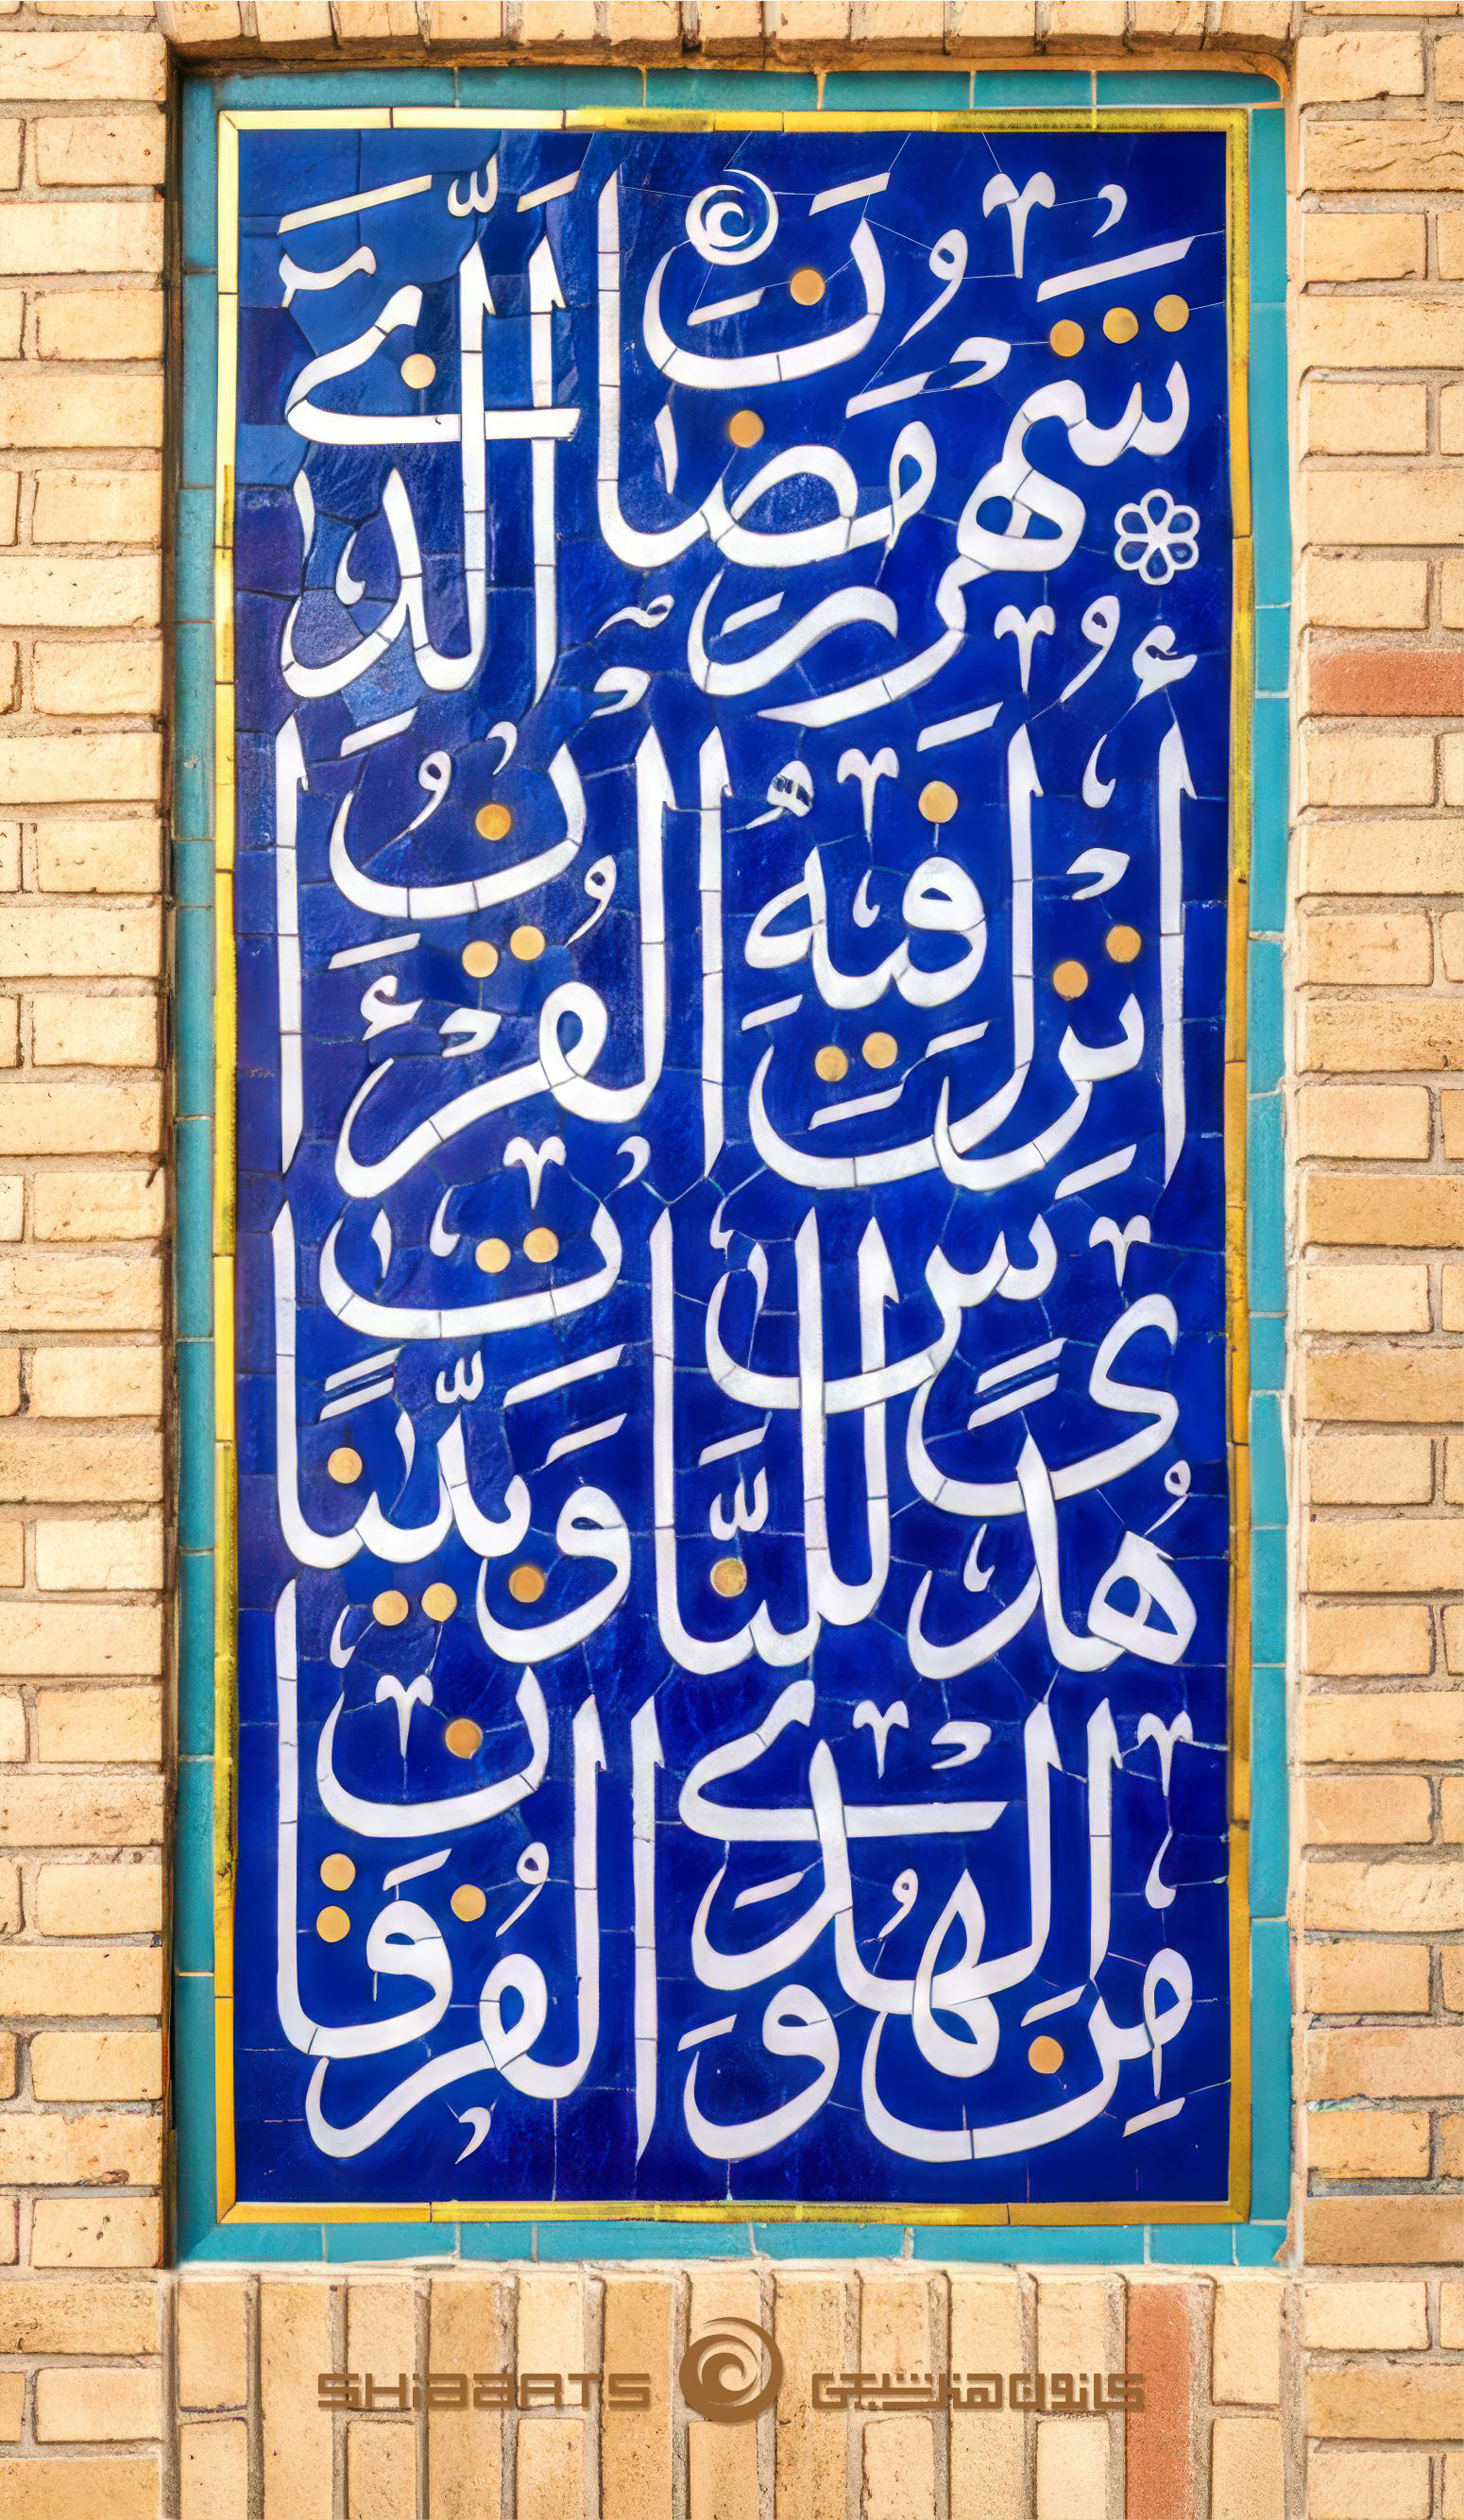 شَهْرُ رَمَضَانَ الَّذِي
أُنْزِلَ فِيهِ الْقُرْءَانُ
هُدًى لِلنَّاسِ وَبَيِّنَاتٍ
مِنَ الْهُدَى وَالْفُرْقَانِ
SHIAARTS کانون هنر شیعی